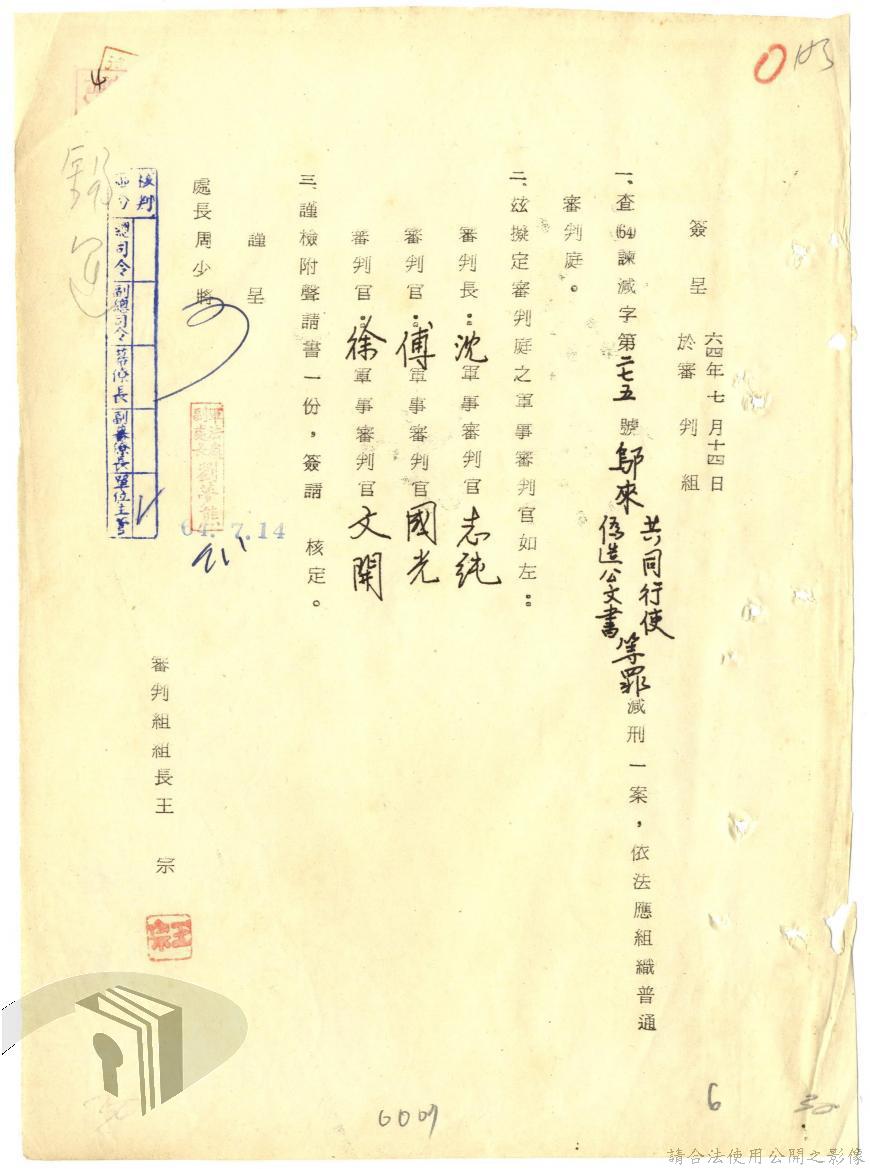 簽呈
六四年七月十四日
於審判組
一、查(64)諫減字第二七五號鄔來共同行使偽造公文書等罪減刑一案，依法應組織普通
審判庭。
二、茲擬定審判庭之軍事審判官如左：
審判長：沈軍事審判官志純
審判官：傅軍事審判官國光
審判官：徐軍事審判官文開
三、謹檢附聲請書一份，簽請　核定。
謹呈
處長周少將
64.7.14
審判組組長王　宗
王宗
核判
區分
總司令
副總司令
幕僚長
副幕僚長
單位主管
4
6
30
6009
請合法使用公開之影像